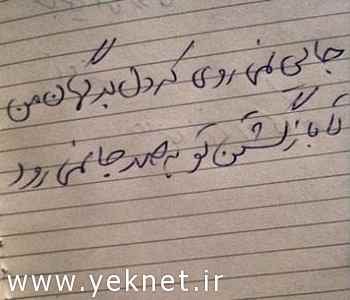 جائی نمی روی که دل بد گمان من
تا بازگشتن تو به صد جا نمی رود
www.yeknet.ir